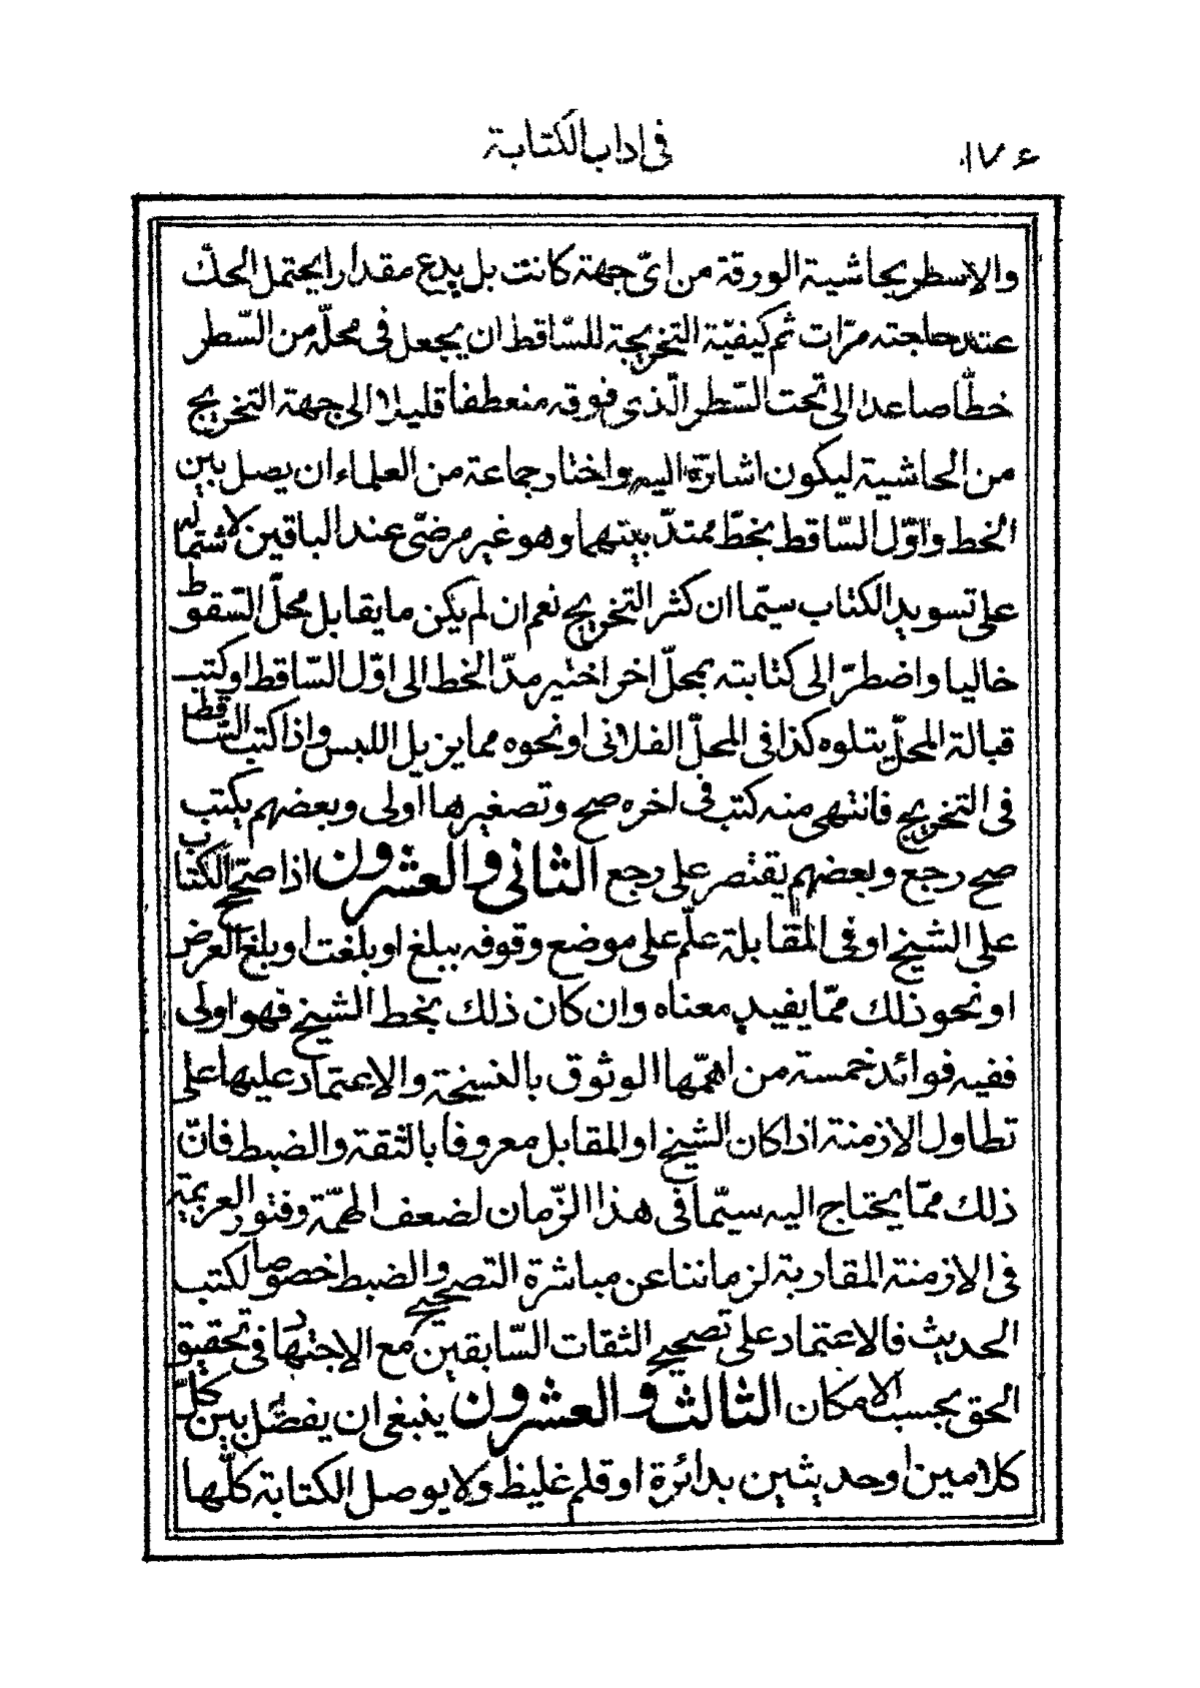 ١٧٤ فى اداب الكتابة
والاسطر بحاشية الورقة من اىّ جهة كانت بل يدع مقدارا يحتمل الحكّ
عند حاجته مرّات ثم كيفيّة التخريجة للسّاقط ان يجعل فى محلّه من السّطر
خطّا صاعدا الى تحت السّطر الّذى فوقه منعطفا قليلا الى جهة التخريج
من الحاشية ليكون اشارة اليه واختار جماعة من العلماء ان يصل بين
الخط واوّل السّاقط بخطّ ممتدّ بينهما وهو غير مرضىّ عند الباقين لاشتماله
على تسويد الكتاب سيّما ان كثر التخريج نعم ان لم يكن ما يقابل محلّ السّقوط
خاليا واضطرّ الى كتابته بمحلّ اخر اختير مدّ الخط الى اوّل السّاقط او كتب
قبالة المحلّ يتلوه كذا فى المحلّ الفلانى او نحوه مما يزيل اللبس واذا كتب السّاقط
فى التخريج فانتهى منه كتب فى اخره صح وتصغيرها اولى وبعضهم يكتب
صح رجع وبعضهم يقتصر على رجع الثانى والعشرون اذا صحّح الكتاب
على الشيخ او فى المقابلة علّم على موضع وقوفه ببلغ او بلغت او بلغ العرض
او نحو ذلك ممّا يفيد معناه وان كان ذلك بخط الشيخ فهو اولى
ففيه فوائد خمسة من اهمّها الوثوق بالنسخة والاعتماد عليها على
تطاول الازمنة اذا كان الشيخ او المقابل معروفا بالثقة والضبط فانّ
ذلك ممّا يحتاج اليه سيّما فى هذا الزّمان لضعف الهمّة وفتور العزيمة
فى الازمنة المقاربة لزماننا عن مباشرة التصحيح والضبط خصوصا لكتب
الحديث فالاعتماد على تصحيح الثقات السّابقين مع الاجتهاد فى تحقيق
الحق بحسب الامكان الثالث والعشرون ينبغى ان يفصّل بين كلّ
كلامين او حديثين بدائرة او قلم غليظ ولا يوصل الكتابة كلّها